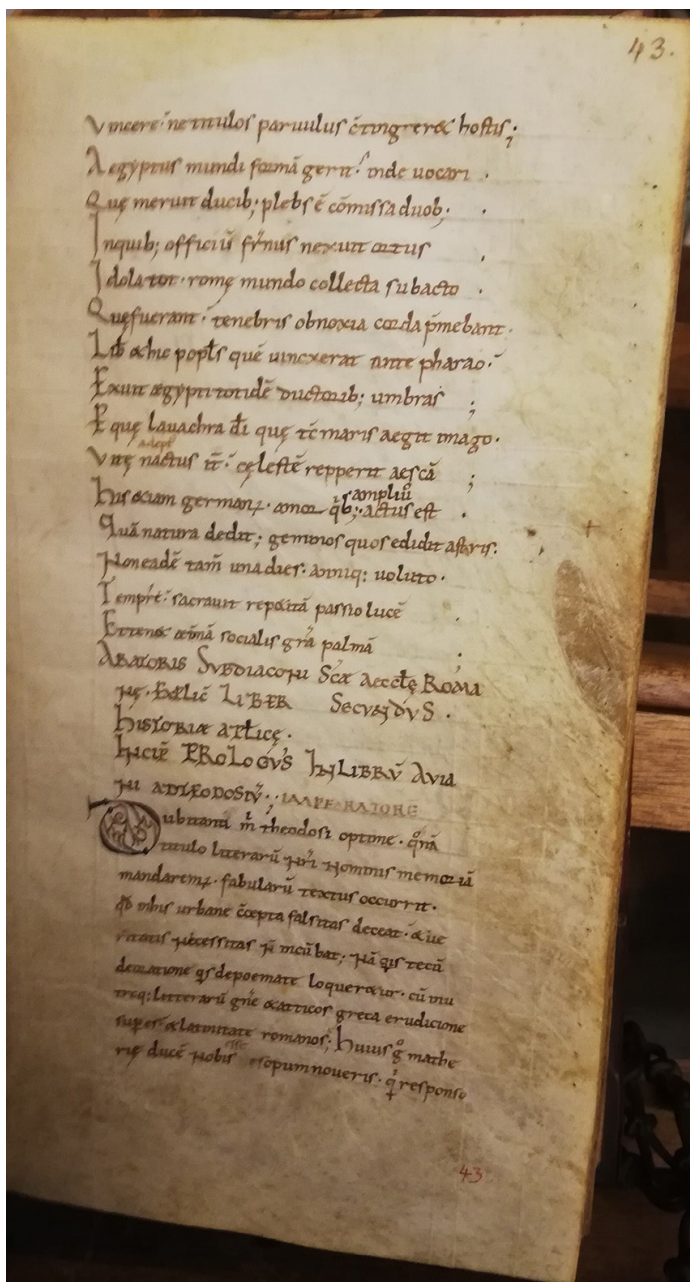 43.
Vincere· ne titulos paruulus c̄tingeret hostis;
Aegyptus mundi formā gerit· inde uocari
Quę meruit ducib; plebs ē cōmissa duob;
Inquib; officiū
Idola tot· romę mundo collecta subacto
Quefuerant· tenebris obnoxia corda p̄mebant·
Lib &hic popl̄s quē uincxerat ante pharao·
Exuit ægypti totidē ductorib; umbras ;
Equę lauachra dī quę tc̄ maris aegit imago·
Vitę nactus ic̄lestē repperit aescā ;
ampliū
his &iam germanꝝ· amor q̄b; actus est
Quā natura dedit; geminos quos edidit astris·
Non eadē tam̄ una dies· anniq: uoluto·
Tempr̄e· sacrauit repetitā passio lucē
Et tenet &nā socialis gr̄a palmā
ARATORIS SUBDIACONI SCÆ AECCLĘ ROMA
NĘ· EXPLIC̄ LIBER SECUNDUS·
HISTORIAE APL̄ICĘ·
INCIP̄ PROLOGUS INLIBRŪ AVIA
NI ADTHEODOSIŪ; IMPERATORE
Dubitanti m̄ theodosi optime· qͦnā
titulo literarū nr̄i nominis memoriā
mandaremꝰ· fabularū textus occurrit·
qd̄ inhis urbane c̄cepta falsitas deceat· &ue
ritatis necessitas n̄ incūbat; nā qis tecū
deoratione qs depoemate loquer&ur· cū inu
treq; litterarū gn̄e &atticos greca erudicione
sup̄es· &latinitate romanos; Huius gͦ mathe
rię ducē nobis esopum noueris· q̄ responso
43